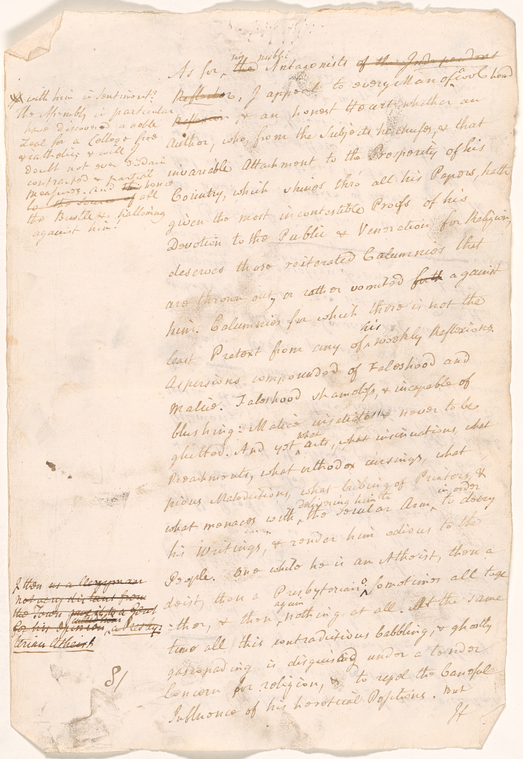 his public
As for, the Antagonists of the Independent
Reflector, I appeal to every Man of cool head
& an honest Heart, whether an
Author, who from the Subjects he chuses, & that
invariable Attachment to the Prosperity of his
Country, which shines thro all his Papers, hath
given the most incontestible Proofs of his
Devotion to the Public & Veneration for Religion,
deserves those reiterated Calumnies that
are thrown out, or rather vomited forth against
him. Calumnies for which there is not the
least Pretext from any of his weekly Reflexions.
Aspersions compounded of Falsehood and
Malice. Falsehood shameless, & incapable of
blushing: Malice insatiable & never to be
glutted. And yet what Arts, what insinuations, what
Preachments, what orthodox cursings, what
pious Maledictions, what bribing of Printers, &
what menaces with the secular Arm, in order to decry
his Writings, & render him odious to the
People. One while he is an Atheist, then a
deist, then a Presbyterian, sometimes all toge
ther, & then again nothing at all. At the same
time all this contradictious babbling, & ghostly
gasconading is disguised under a tender
Concern for religion, & to repel the baneful
Influence of his heretical Positions. But
If
with him in Sentiment?
The Assembly in particular
have discovered a noble
Zeal for a College free
& catholic & will
doubt not ever disdain
contracted & partial
measures. And
to the Source of all
the Bustle &
against him!
I then as a Clergyman
not very distant from
the Town
to his opinion, a Deistic,
Arian Atheist
81